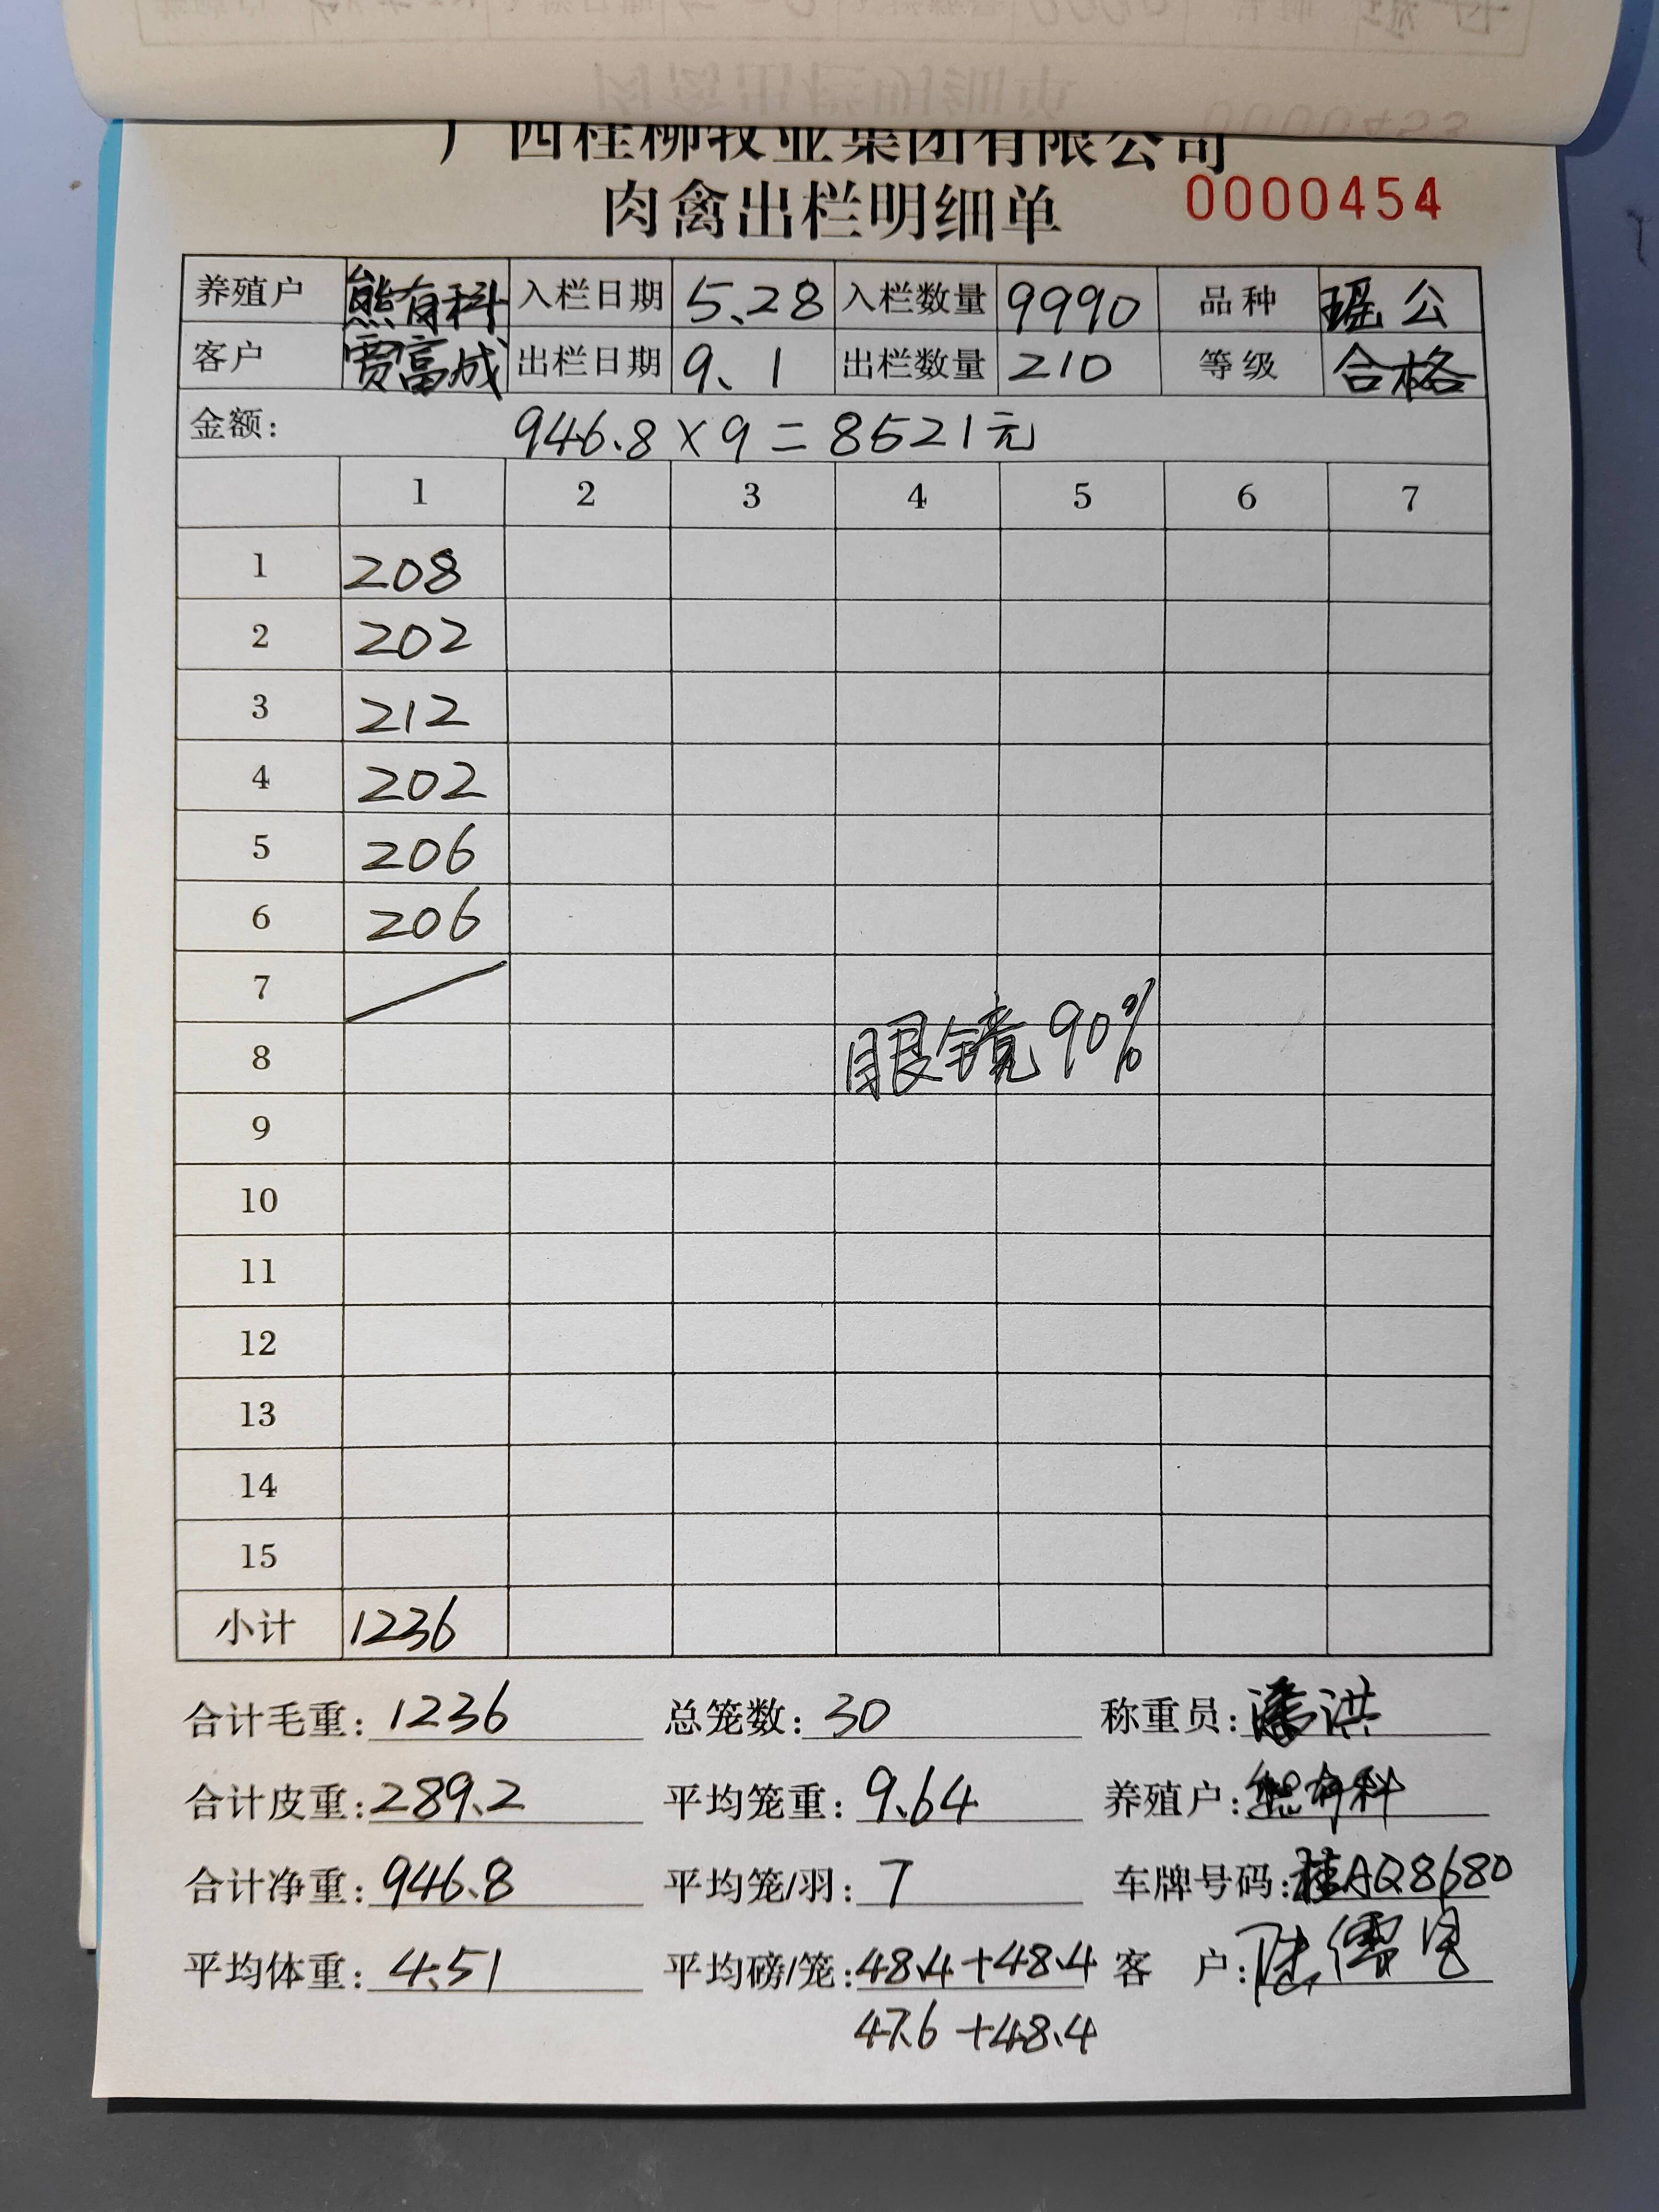 广西桂柳牧业集团有限公司
肉禽出栏明细单 0000454
养殖户 熊有科 入栏日期 5.28 入栏数量 9990 品种 瑶公
客户 贾富成 出栏日期 9.1 出栏数量 210 等级 合格
金额: 946.8×9=8521元
1 2 3 4 5 6 7
1 208
2 202
3 212
4 202
5 206
6 206
7
眼镜90%
8
9
10
11
12
13
14
15
小计 1236
合计毛重: 1236 总笼数: 30 称重员: 潘洪
合计皮重: 289.2 平均笼重: 9.64 养殖户: 熊有科
合计净重: 946.8 平均笼/羽: 7 车牌号码: 桂AQ8680
平均体重: 4.51 平均磅/笼: 48.4+48.4 客 户:
47.6+48.4